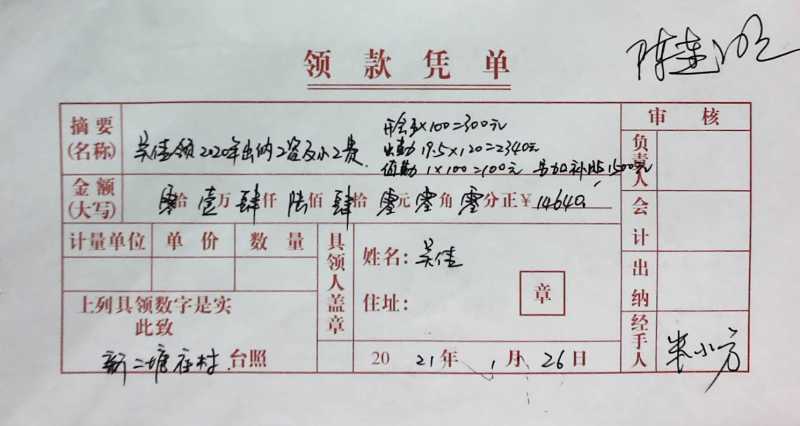 领款凭单
审核
摘要
(名称)
吴佳领2020年出纳工资及小工费
开会3×100=300元
出勤19.5×120=2340元
值勤1×100=100元 另加补贴1500元
负责人
金额
(大写)
零拾壹万肆仟陆佰肆拾零元零角零分正¥14640
会计
计量单位 单价 数量
具领人盖章
姓名:吴佳
住址:
章
出纳
上列具领数字是实
此致
新二塘庄村 台照
2021年1月26日
经手人
小方